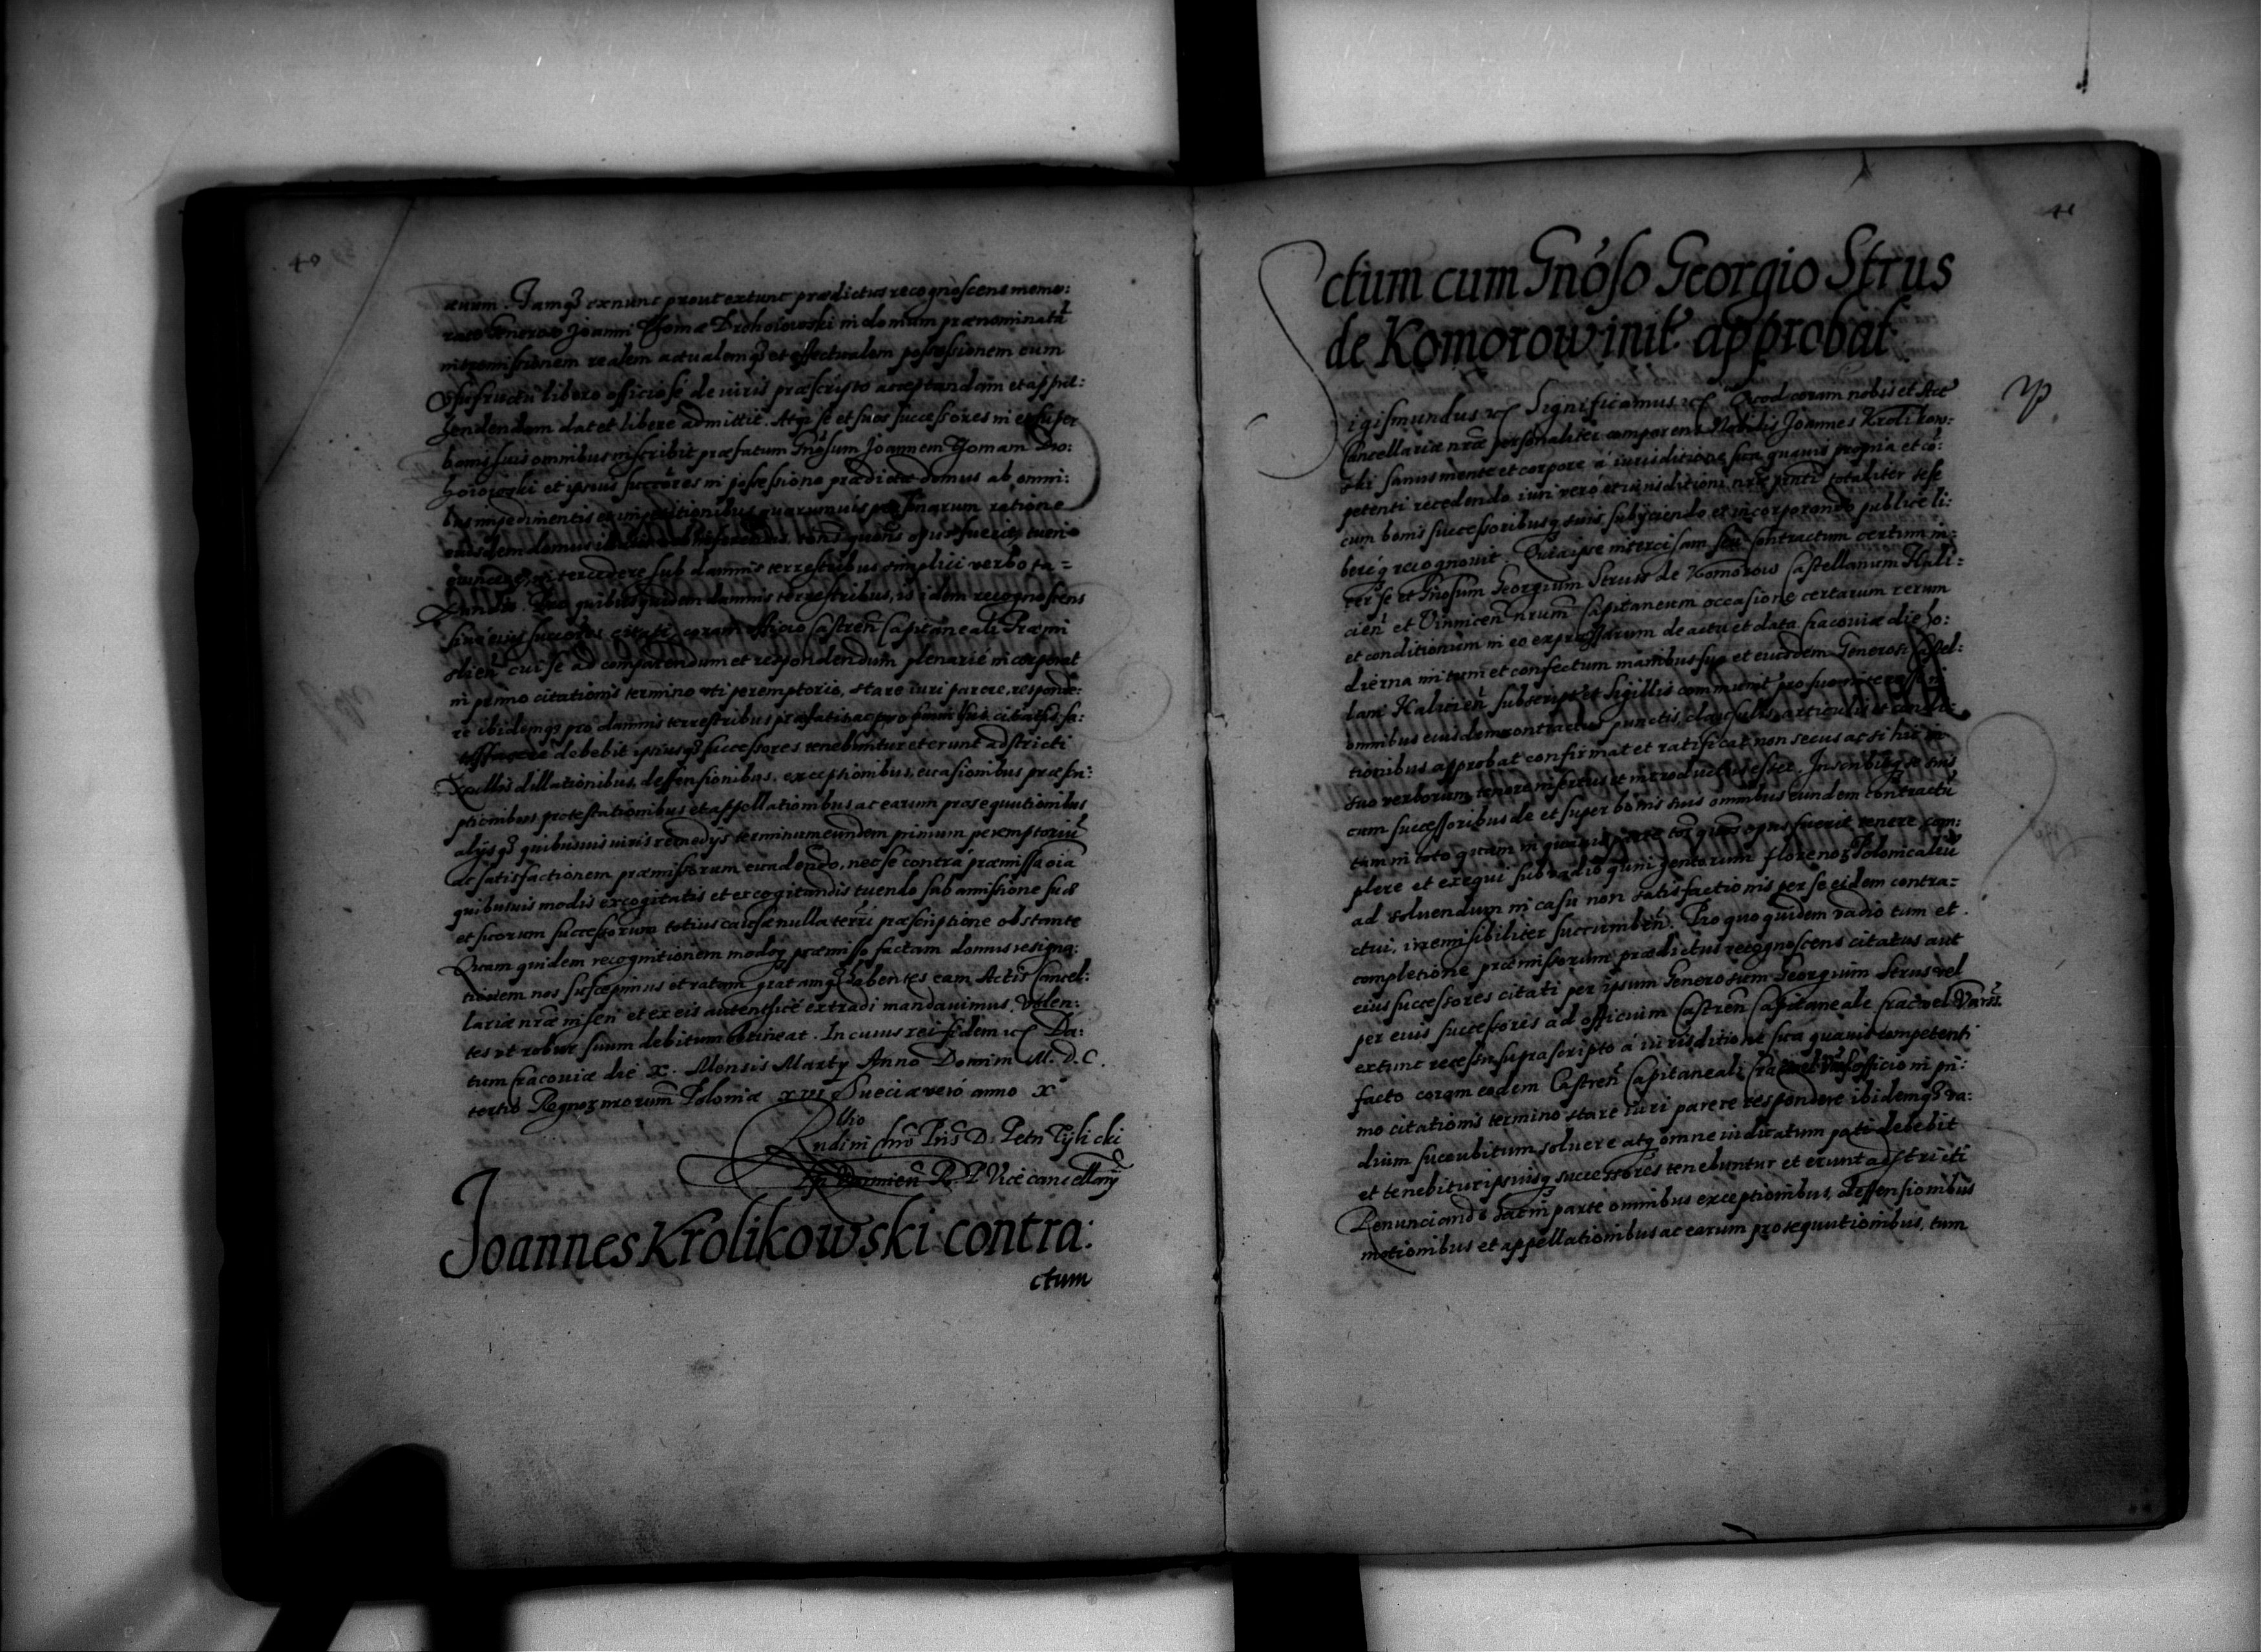 40
æuum. Iamq3 exnunc prout extunc prædictus recognoscens memo:
rato Generoso Joanni Thomæ Drohoiowski in domum prænominatā
intromissionem realem actualemq3 et effectualem possessionem cum
Vsufructu libero officiose de iuris præscripto acceptandam et appre:
hendendam dat et libere admittit. Atq3 se et suos successores in et super
bonis suis omnibus inscribit præfatum Gnōsum Joannem Thomam Dro:
hoiowski et ipsius succōres in possessione prædictæ domus ab omni:
bus impedimentis et impetitionibus quarumuis personarum ratione
eiusdem domus toties quoties opus fuerit, tueri
euincere, intercedere sub damnis terrestribus simplici verbo ta=
xandis. Pro quibus quidem damnis terrestribus, is idem recognoscens
siue eius succōres citati coram Officio Castreñ Capitaneali Præmi
slieñ cui se ad comparendum et respondendum plenarie incorporat
in primo citationis termino vti peremptorio, stare iuri parere, responde:
re ibidemq3 pro damnis terrestribus præfatis ac pro citatus sa:
tisfacere debebit ipsiusq3 successores tenebuntur et erunt adstricti
Exullis dillationibus, deffensionibus, exceptionibus, euasionibus præscri:
ptionibus protestationibus et appellationibus ac earum prosequutionibus
alijsq3 quibusuis iuris remedijs terminum eundem primum peremptoriū
ac satisfactionem præmissorum euadendo, nec se contra præmissa oia
quibusuis modis excogitatis et excogitandis tuendo sub amissione suæ
et suorum successorum totius causæ nulla terrī præscriptione obstante
Quam quidem recognitionem modoq præmisso factam domus resigna:
tionem nos suscepimus et ratam gratamq3 habentes eam Actis Cancel:
lariæ nræ inseri et ex eis autentice extradi mandauimus. Volen:
tes vt robur suum debitum obtineat. In cuius rei fidem etc Da:
tum Cracouiæ die X. Mensis Martij Anno Domini M. D. C.
tertio Regnor3 nrorum Poloniæ XVI Sueciæ vero anno X
Rndi in Chrō Pris D. Petri Tylicki
Epi Varmień R. P. Vicecancellarij
Joannes Krolikowski contra:
ctum
41
ctum cum Gnōso Georgio Strus
de Komorow init. approbat
Sigismundus etc Significamus etc Quod coram nobis et Actis
Cancellariæ nræ personaliter comparens Nobilis Joannes Krolikow:
ski sanus mente et corpore á iurisditione sua quauis propria et cō:
petenti recedendo iuri vero et iurisditioni nræ pnti totaliter sese
cum bonis successoribusq suis subijciendo et incorporando publice li:
bereq recognouit. Quia ipse intercisam seu contractum certum in:
ter se et Gnosum Georgium Struss de Komorow Castellanum Hali:
cień et Vinnicen nrum Capitaneum occasione certarum rerum
et conditionum in eo expressarum de actu et data Cracouiæ die ho:
dierna initum et confectum manibus suo et eiusdem Generosi Castel:
lani Halicień subscript et sigillis communit pro suo interesse in
omnibus eiusdem contractus punctis, clausulis, articulis et condi:
tionibus approbat confirmat et ratificat non secus ac si hic in
suo verborum tenore insertus et introductus esset. Inscribitq3 se suis
cum successoribus de et super bonis suis omnibus eundem contractū
tam in toto quam in quauis parte toties quoties opus fuerit tenere com:
plere et exequi sub vadio quingentorum florenor3 Polonicaliū
ad soluendum in casu non satisfactionis per se eidem contra=
ctui, irremisibiliter succumbeñ. Pro quo quidem vadio tum et
completione præmissorum prædictus recognoscens citatus aut
eius successores citati per ipsum Generosum Georgium Strus vel
per eius successores ad officium Castreñ Capitaneale Cracoviensem
extunc recessu suprascripto á iurisditione sua quauis competenti
facto coram eodem Castreñ Capitaneali officio in pri:
mo citationis termino stare iuri parere respondere ibidemq3 va:
dium succubitum soluere atq omne iudicatum pati debebit
et tenebitur ipsiusq successores tenebuntur et erunt adstricti
Renunciando hac in parte omnibus exceptionibus, deffensionibus
motionibus et appellationibus ac earum prosequutionibus, tum